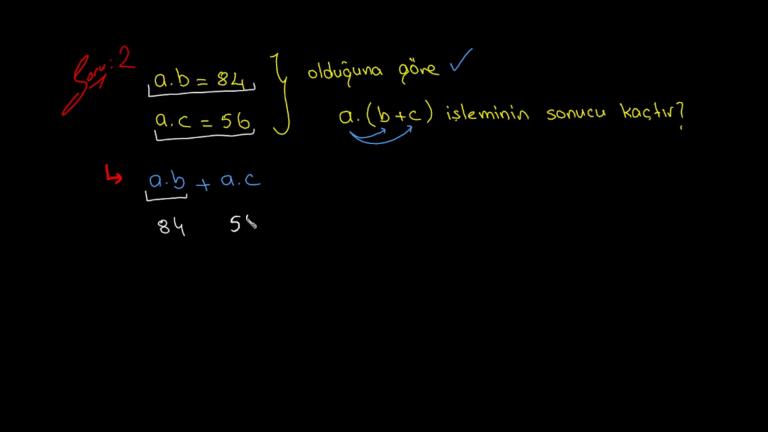 Soru: 2
a.b = 84
a.c = 56
olduğuna göre
a.(b+c) işleminin sonucu kaçtır?
a.b + a.c
84